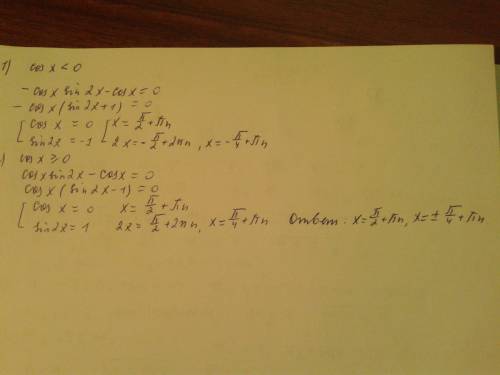 1) cos x < 0
- cos x sin 2x - cos x = 0
- cos x (sin 2x + 1) = 0
[ cos x = 0 [ x = π/2 + πn
sin 2x = -1 2x = -π/2 + 2πn, x = -π/4 + πn
) cos x ≥ 0
cos x sin 2x - cos x = 0
cos x (sin 2x - 1) = 0
[ cos x = 0 x = π/2 + πn
sin 2x = 1 2x = π/2 + 2πn, x = π/4 + πn Ответ: x = π/2 + πn, x = ± π/4 + πn